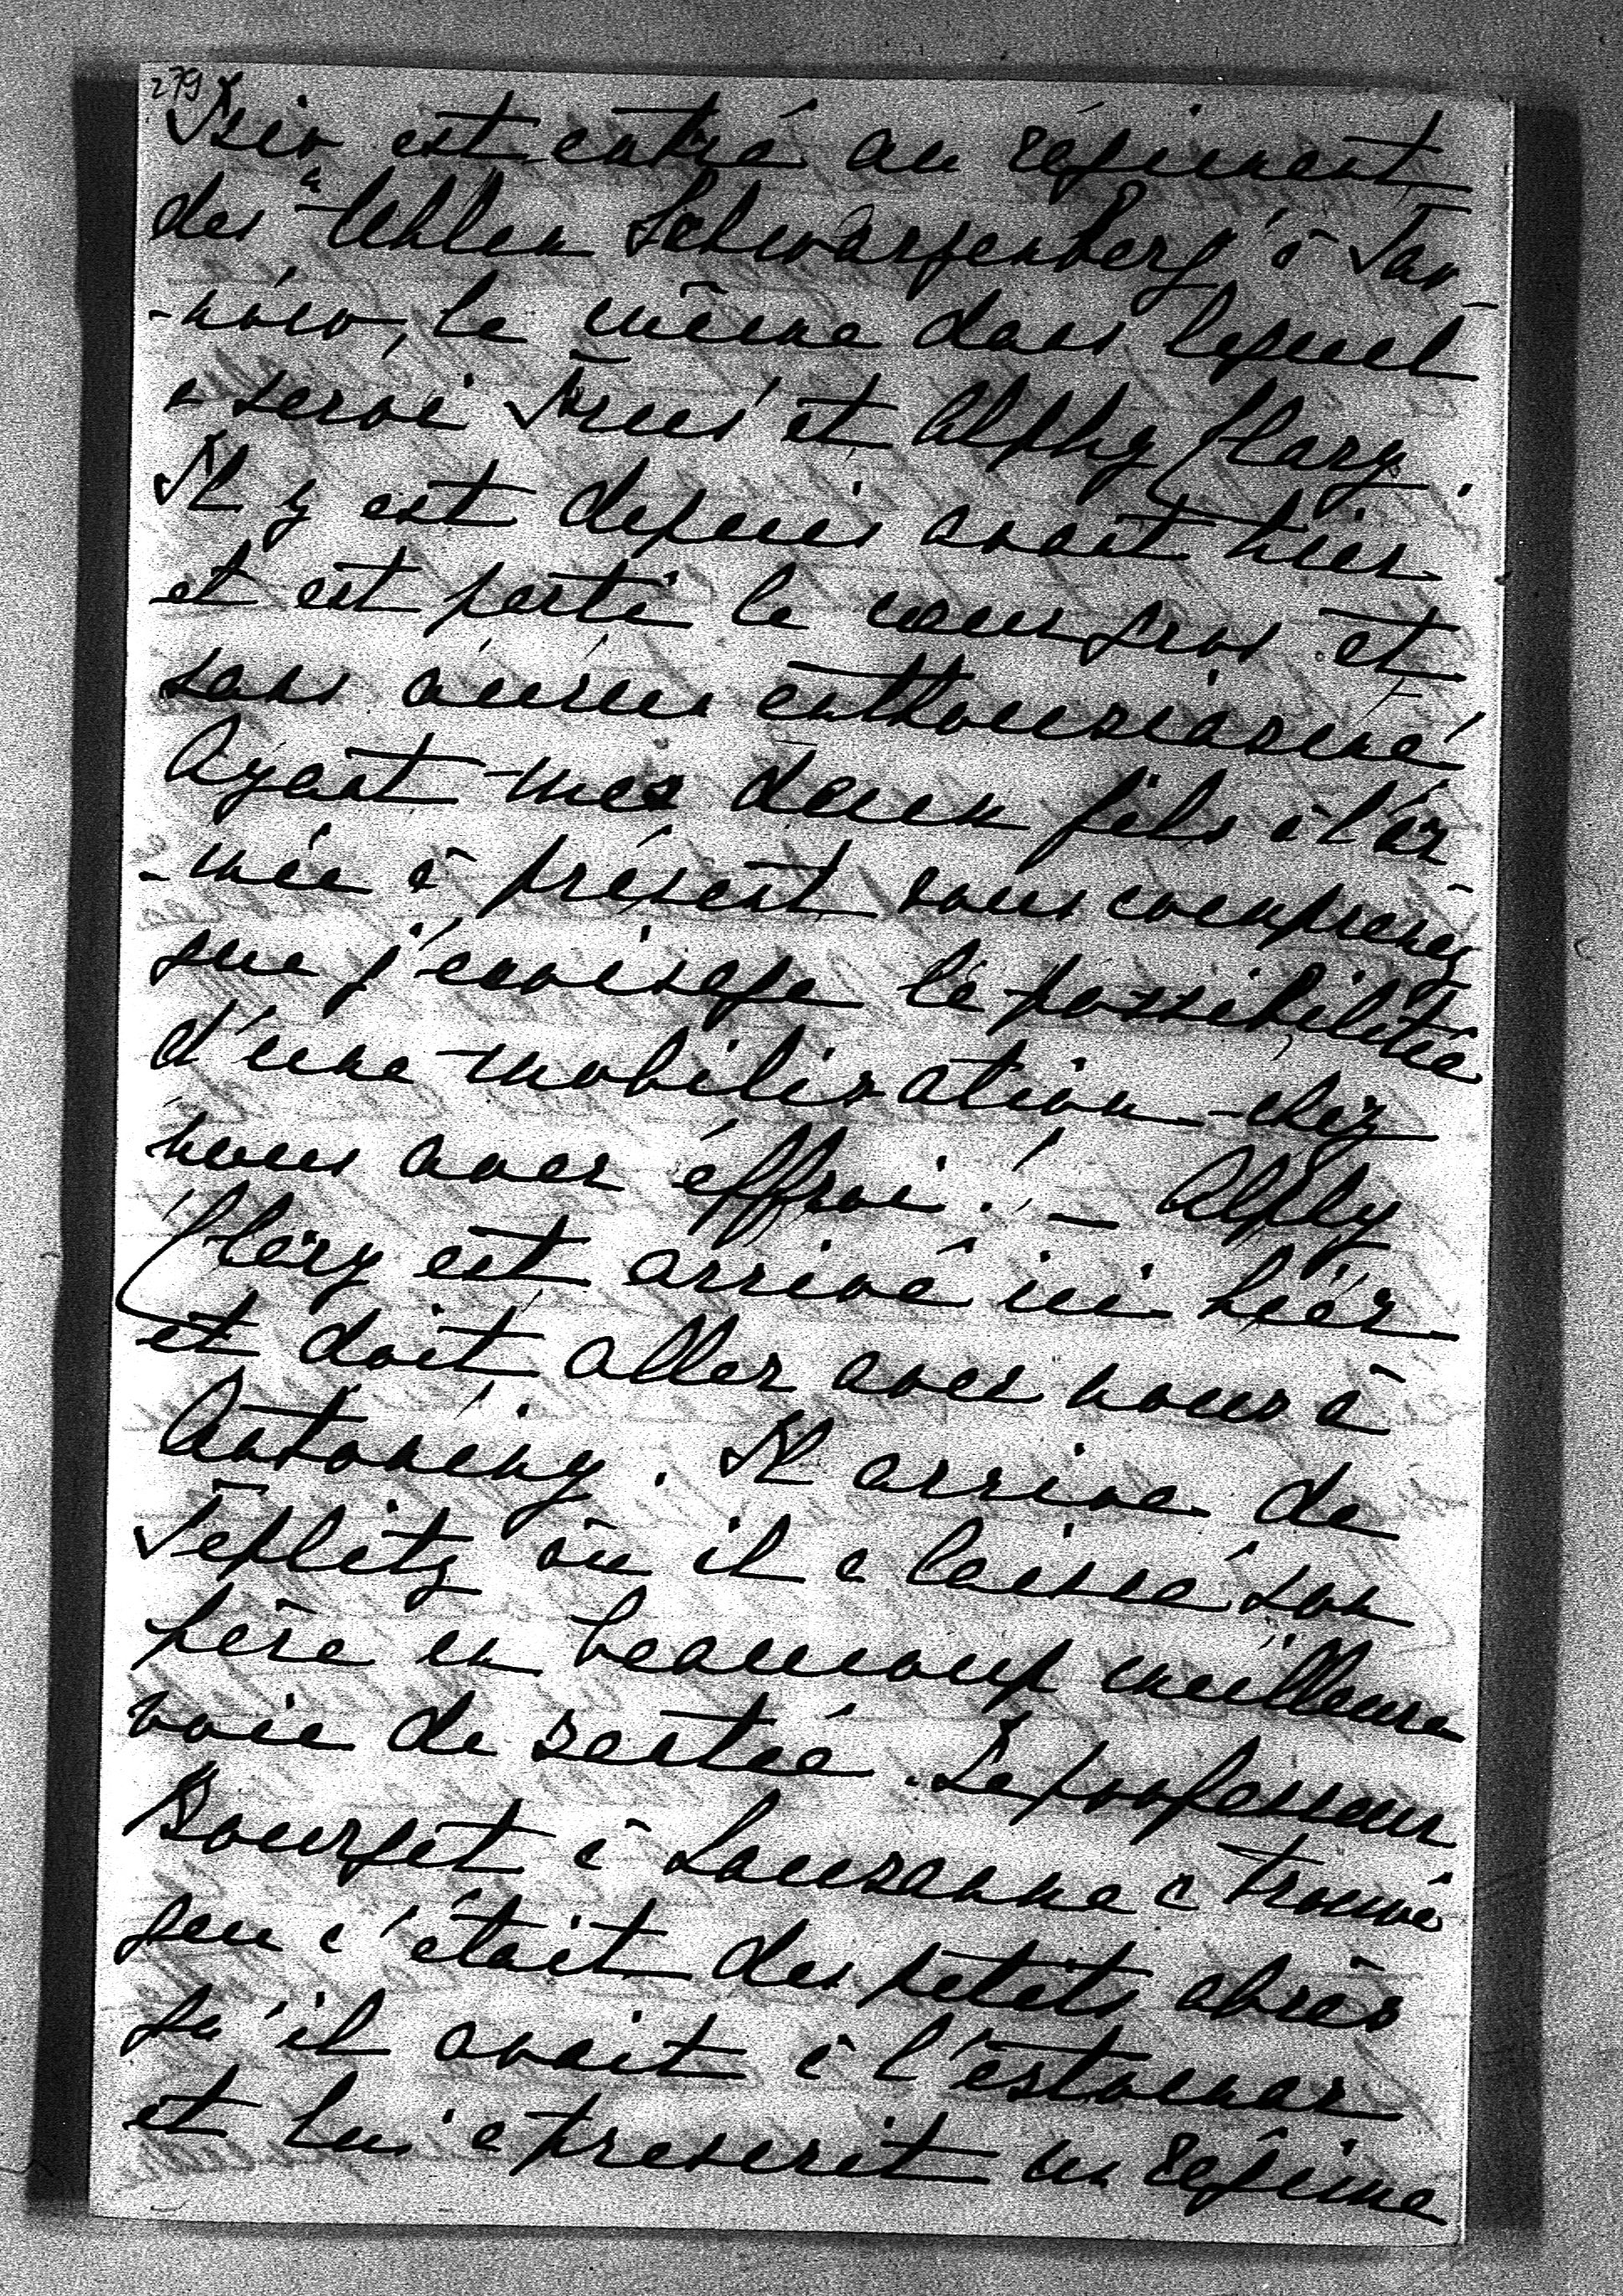 279
est entré au régiment
des "Uhlan Schwarzenberg" à Tar-
-now, le même dans lequel
a servi et Alphy Clary.
Il y est depuis avant hier
et est parti le cœur gros et
sans aucun enthousiasme
Ayant mes deux fils à l'ar-
-mée à présent vous comprenez
que j'envisage la possibilitée
d'une mobilisation chez
nous avec éffroi! – Alphy
Clary est arrivé ici hier
et doit aller avec nous à
Antoniny. Il arrive de
Teplitz où il a laissé son
père en beaucoup meilleure
voie de santée. Le professeur
Bourget à Lausanne a trouvé
que c'était des petits abcès
qu'il avait à l'estomac
et lui a prescrit un régime